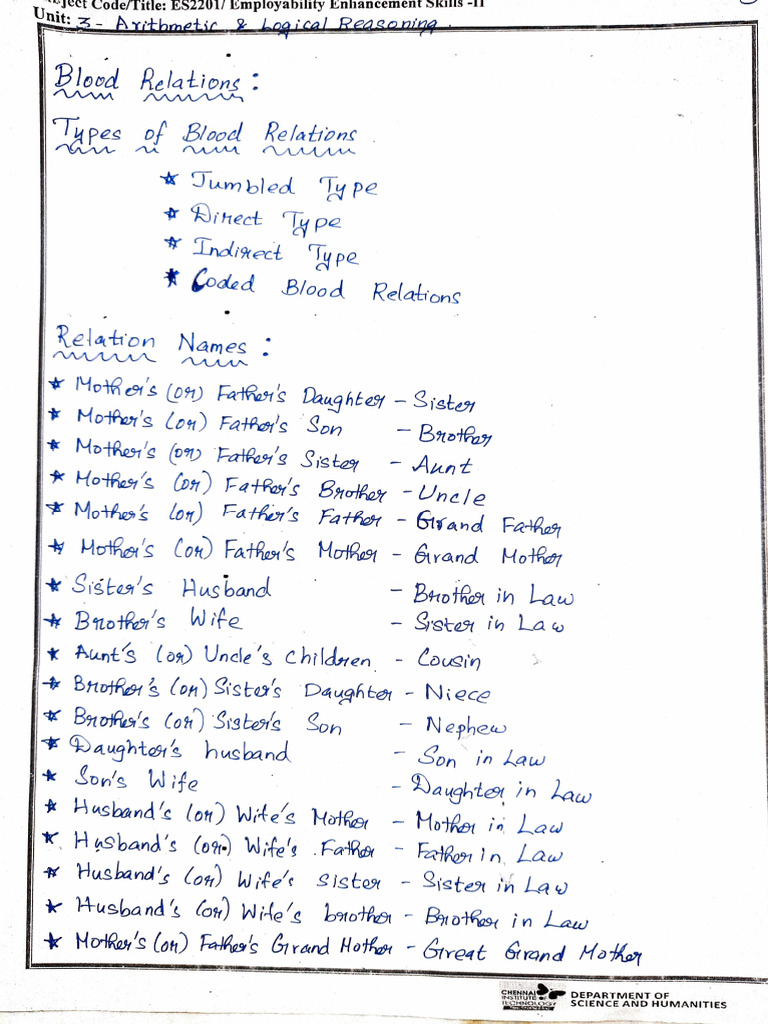 ject Code/Title: ES2201/ Employability Enhancement Skills -II
Unit: 3 - Arithmetic & Logical Reasoning
Blood Relations :
Types of Blood Relations
* Jumbled Type
* Direct Type
* Indirect Type
* Coded Blood Relations
Relation Names :
* Mother's (or) Father's Daughter - Sister
* Mother's (or) Father's Son - Brother
* Mother's (or) Father's Sister - Aunt
* Mother's (or) Father's Brother - Uncle
* Mother's (or) Father's Father - Grand Father
* Mother's (or) Father's Mother - Grand Mother
* Sister's Husband - Brother in Law
* Brother's Wife - Sister in Law
* Aunt's (or) Uncle's children - Cousin
* Brother's (or) Sister's Daughter - Niece
* Brother's (or) Sister's Son - Nephew
* Daughter's husband - Son in Law
* Son's Wife - Daughter in Law
* Husband's (or) Wife's Mother - Mother in Law
* Husband's (or) Wife's Father - Father in Law
* Husband's (or) Wife's Sister - Sister in Law
* Husband's (or) Wife's brother - Brother in Law
* Mother's (or) Father's Grand Mother - Great Grand Mother
CHENNAI
INSTITUTE OF
TECHNOLOGY
DEPARTMENT OF
SCIENCE AND HUMANITIES